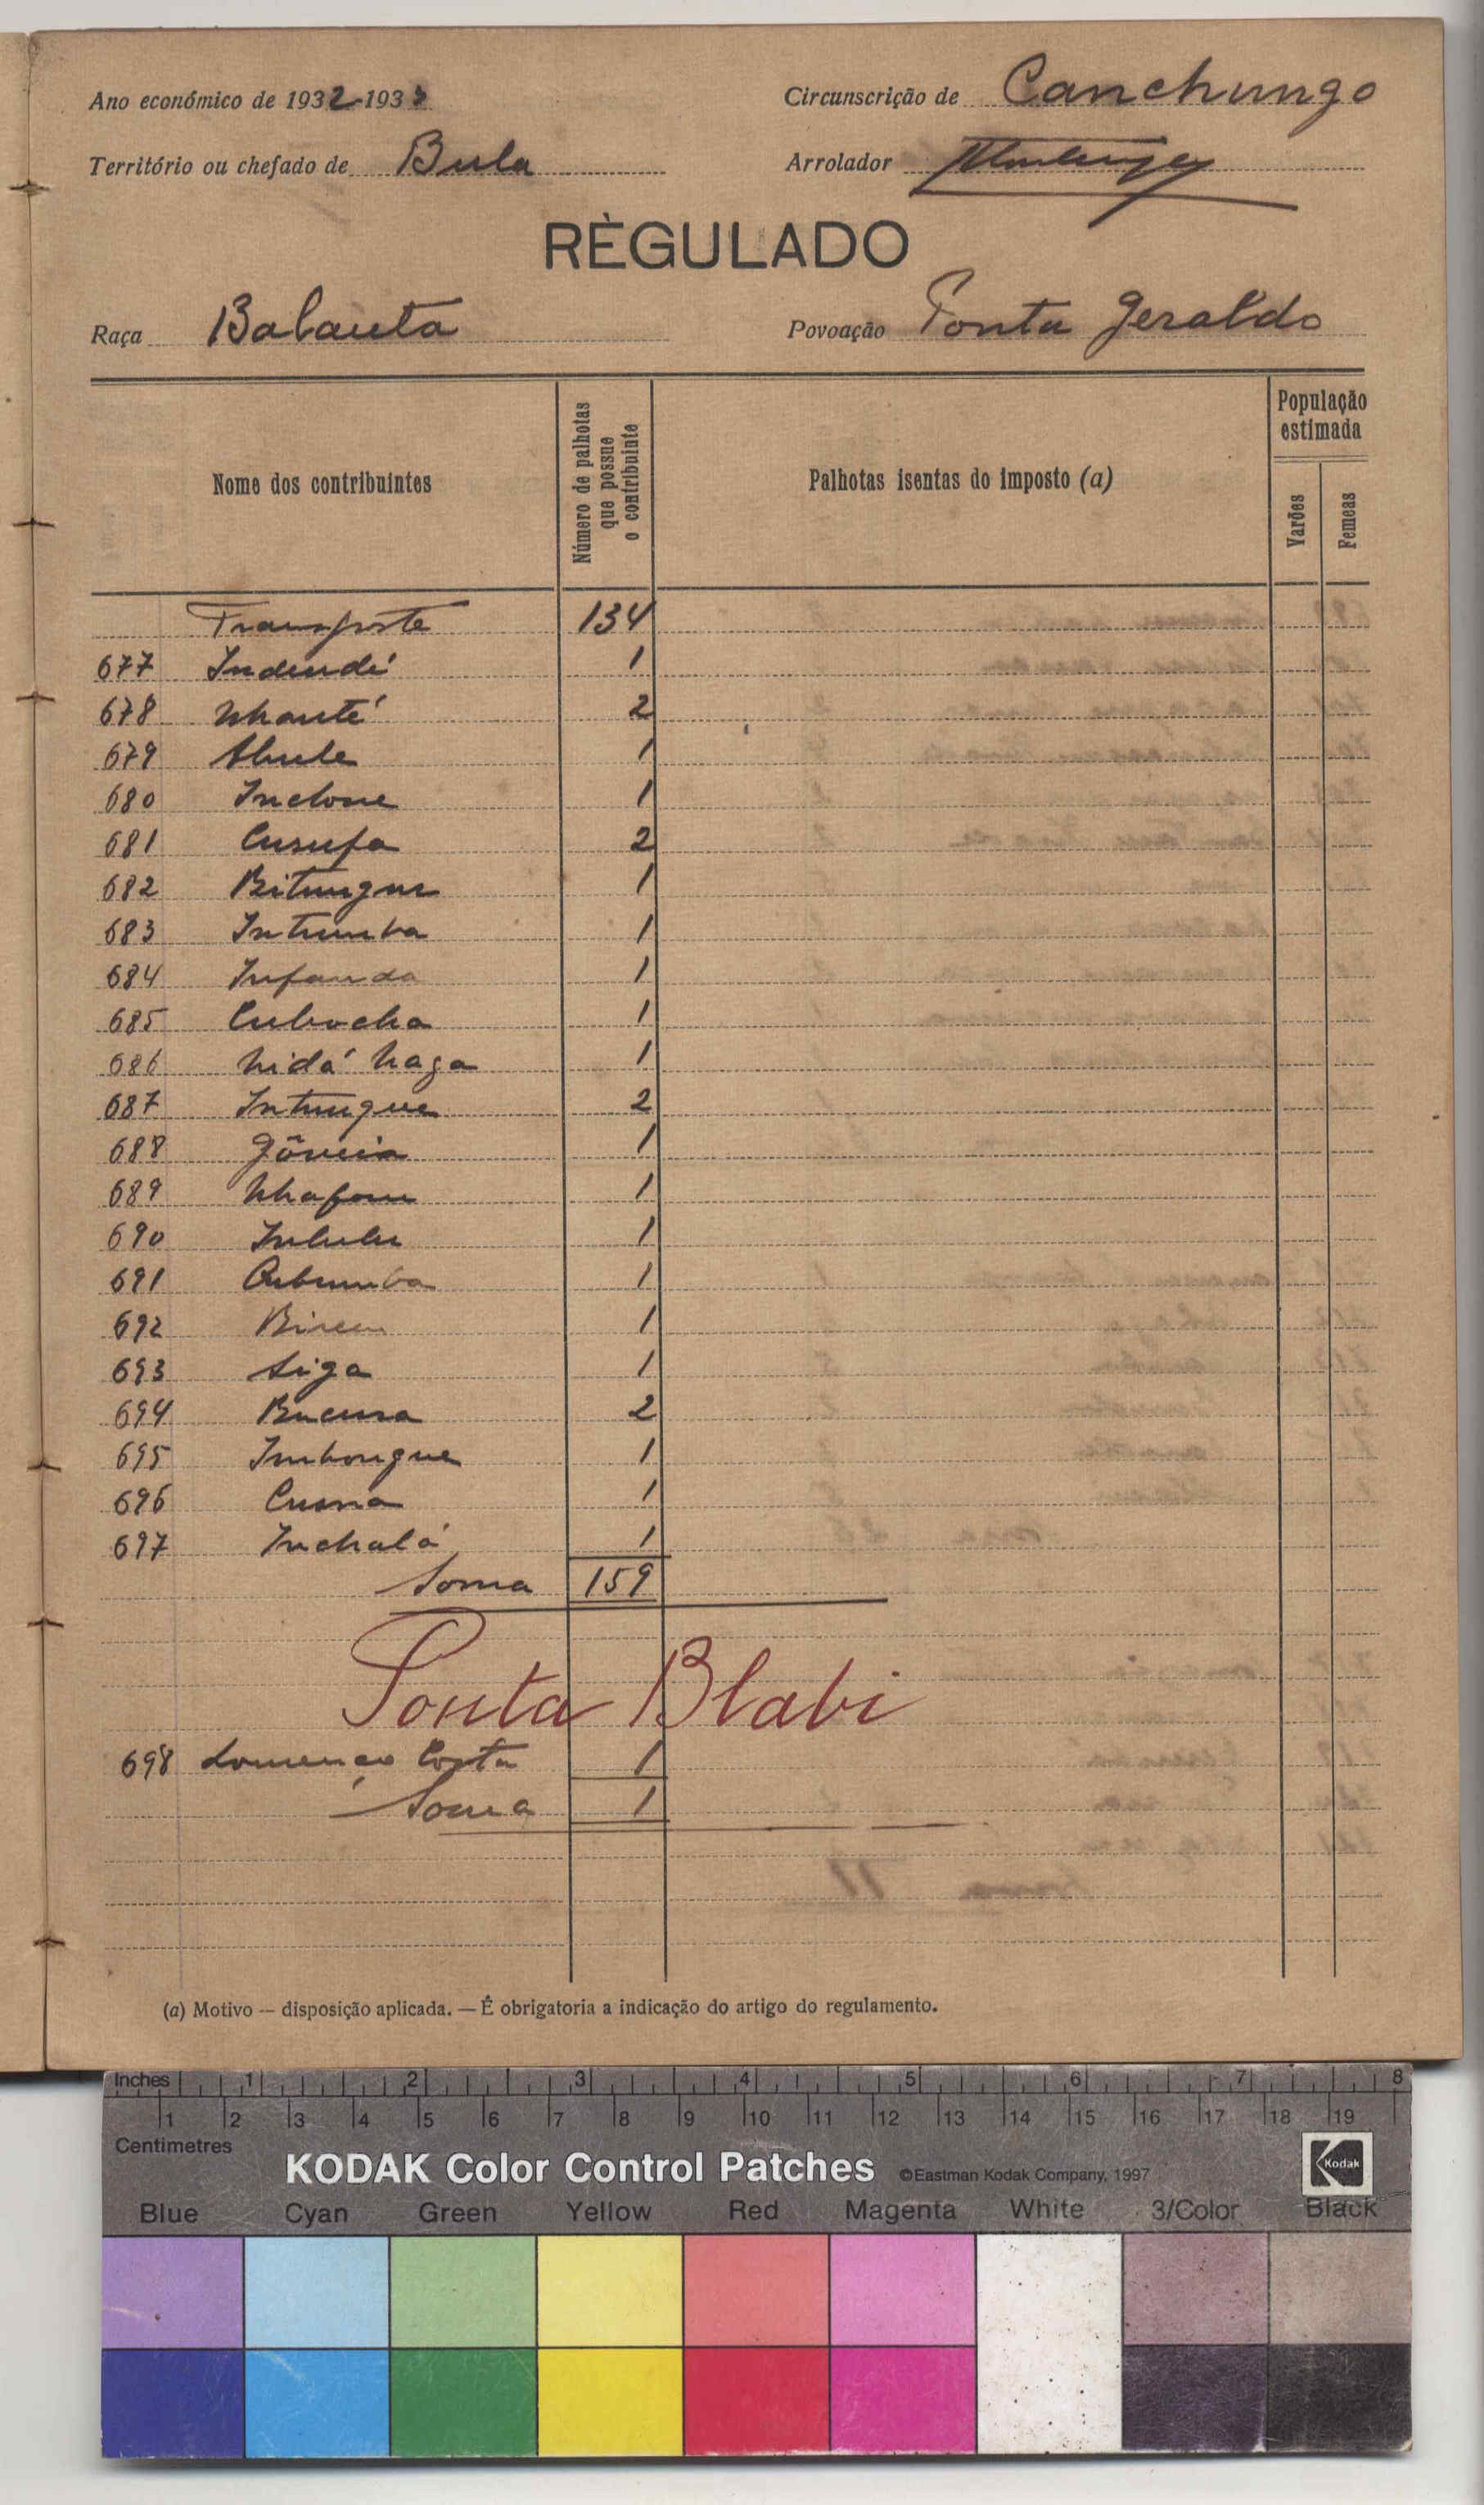 Ano económico de 1932-1933
Circunscrição de Canchungo
Território ou chefado de Bula
Arrolador
RÈGULADO
Raça Balanta
Povoação Ponta Geraldo
Nome dos contribuintes
Número de palhotas que possue o contribuinte
Palhotas isentas do imposto (a)
População estimada
Varões
Femeas
Transporte 134
677 Indendé 1
678 Nhanté 2
679 Abule 1
680 Inclone 1
681 Cusufa 2
682 Bitungue 1
683 Intumba 1
684 Infanda 1
685 Cubocha 1
686 Nidá Naga 1
687 Intungue 2
688 1
689 Nhafom 1
690 Inlulu 1
691 Cubumba 1
692 1
693 Siga 1
694 Bucusa 2
695 Imbongue 1
696 Cusna 1
697 Inchalá 1
Soma 159
Ponta Blabi
698 Lourenço Costa 1
Soma 1
(a) Motivo — disposição aplicada. — É obrigatoria a indicação do artigo do regulamento.
Inches 1 2 3 4 5 6 7 8
1 2 3 4 5 6 7 8 9 10 11 12 13 14 15 16 17 18 19
Centimetres
KODAK Color Control Patches ©Eastman Kodak Company, 1997 Kodak
Blue Cyan Green Yellow Red Magenta White 3/Color Black